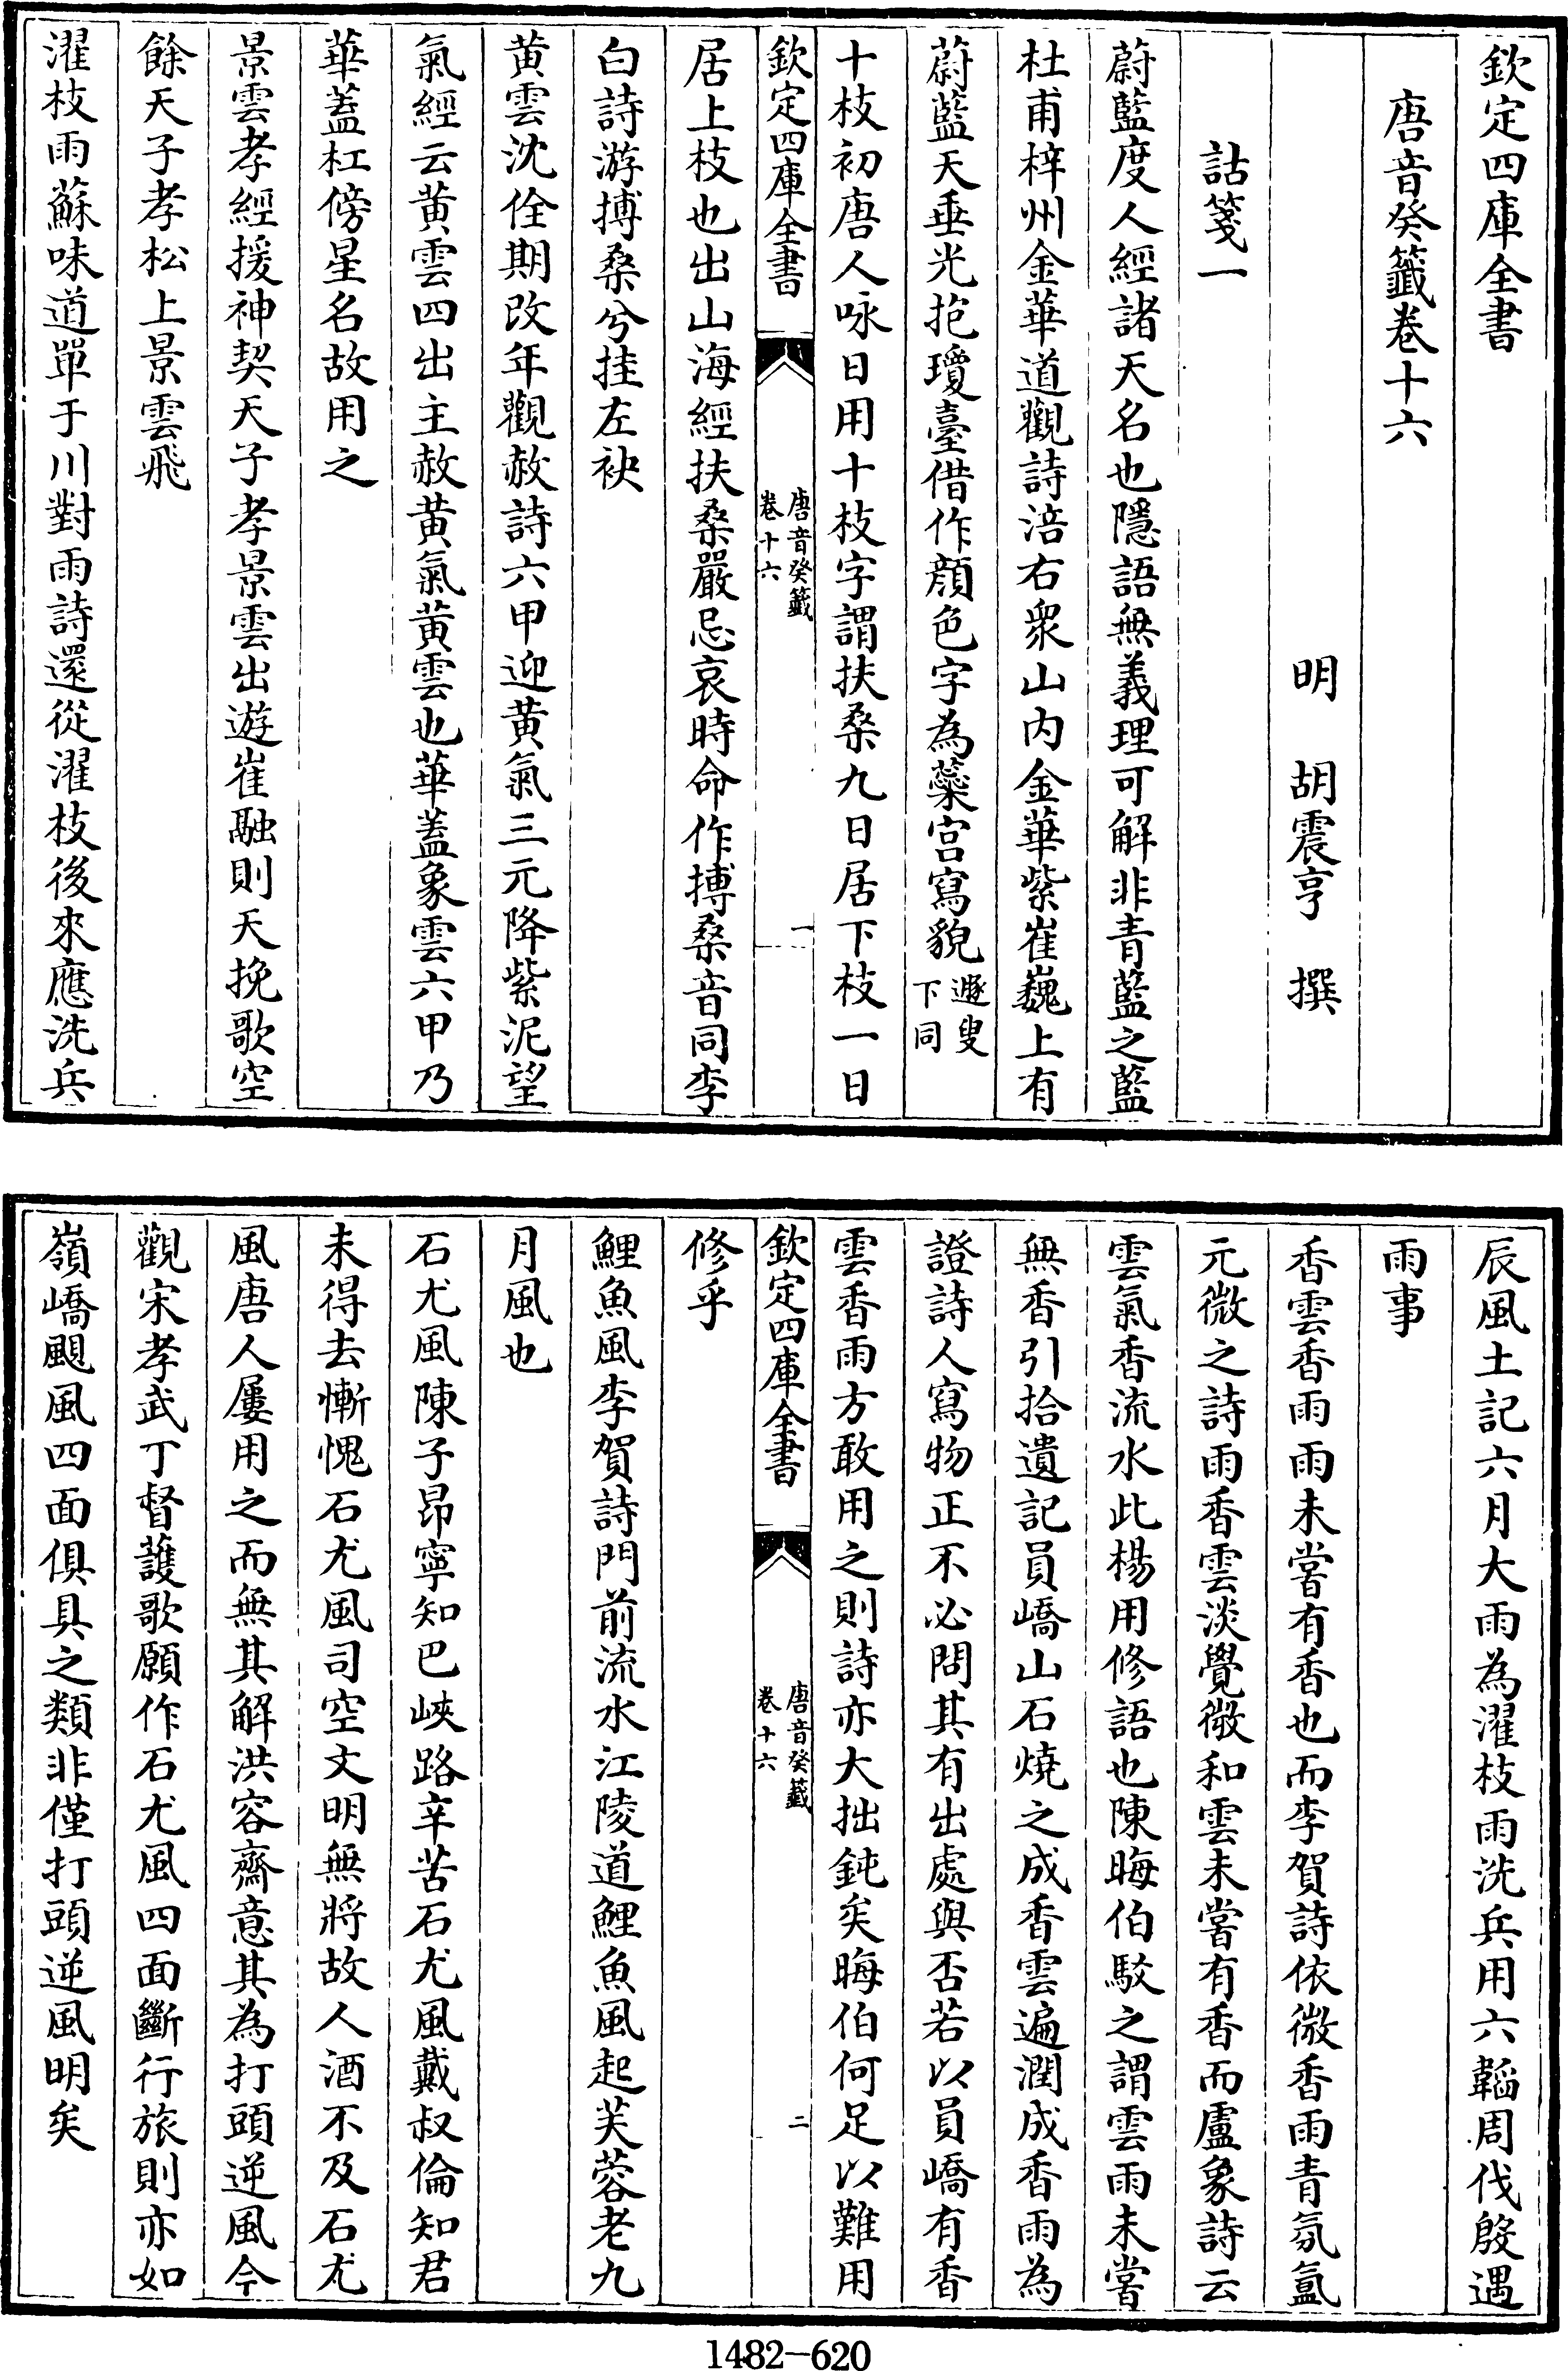 欽定四庫全書
唐音癸籤卷十六
明　胡震亨　撰
詁箋一
蔚藍度人經諸天名也隱語無義理可解非青藍之藍
杜甫梓州金華道觀詩涪右衆山内金華紫崔巍上有
蔚藍天垂光抱瓊臺借作顔色字為蘂宫寫貌遯叟下同
十枝初唐人咏日用十枝字謂扶桑九日居下枝一日
欽定四庫全書
唐音癸籤
卷十六
一
居上枝也出山海經扶桑嚴忌哀時命作搏桑音同李
白詩游搏桑兮挂左袂
黄雲沈佺期改年觀赦詩六甲迎黄氣三元降紫泥望
氣經云黄雲四出主赦黄氣黄雲也華蓋象雲六甲乃
華蓋杠傍星名故用之
景雲孝經援神契天子孝景雲出遊崔融則天挽歌空
餘天子孝松上景雲飛
濯枝雨蘇味道單于川對雨詩還從濯枝後來應洗兵
辰風土記六月大雨為濯枝雨洗兵用六韜周伐殷遇
雨事
香雲香雨雨未嘗有香也而李賀詩依微香雨青氛氳
元微之詩雨香雲淡覺微和雲未嘗有香而盧象詩云
雲氣香流水此楊用修語也陳晦伯駁之謂雲雨未嘗
無香引拾遺記員嶠山石燒之成香雲遍潤成香雨為
證詩人寫物正不必問其有出處與否若以員嶠有香
雲香雨方敢用之則詩亦大拙鈍矣晦伯何足以難用
欽定四庫全書
唐音癸籤
卷十六
二
修乎
鯉魚風李賀詩門前流水江陵道鯉魚風起芙蓉老九
月風也
石尤風陳子昂寧知巴峽路辛苦石尤風戴叔倫知君
未得去慚愧石尤風司空文明無將故人酒不及石尤
風唐人屢用之而無其解洪容齋意其為打頭逆風今
觀宋孝武丁督護歌願作石尤風四面斷行旅則亦如
嶺嶠颶風四面俱具之類非僅打頭逆風明矣
1482-620